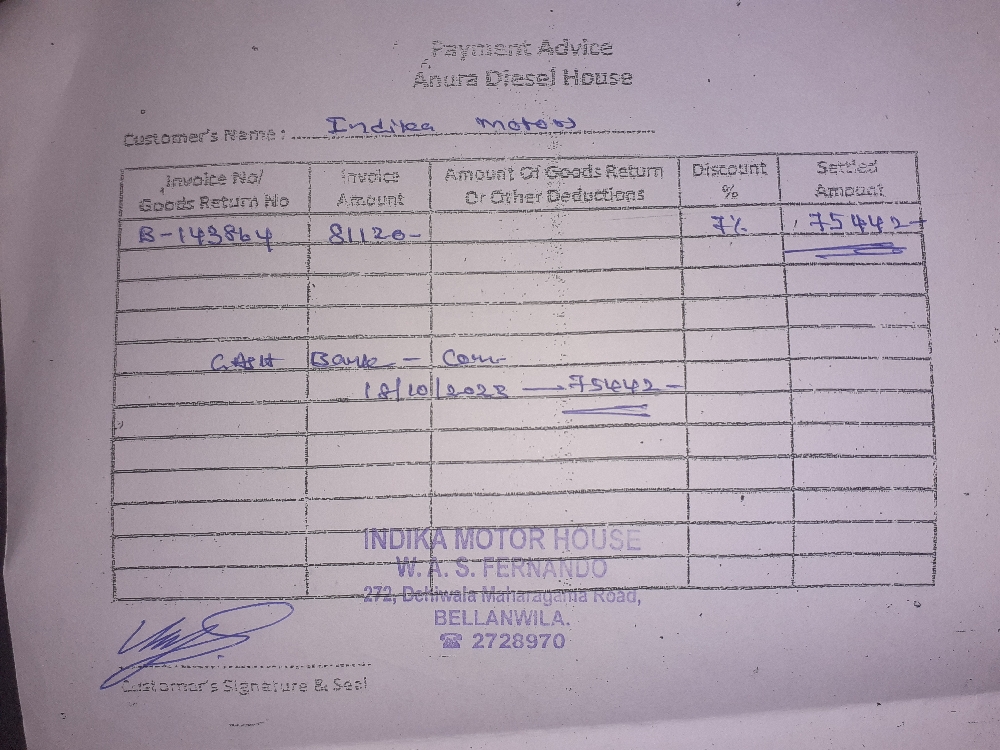 Payment Advice
Anura Diesel House
Customer's Name: Indika Motors
Invoice No/ Goods Return No | Invoice Amount | Amount Of Goods Return Or Other Deductions | Discount % | Settled Amount
B-143864 | 81120- | | 7% | 75442-
CASH Bank - Com
18/10/2023 — 75442-
INDIKA MOTOR HOUSE
W. A. S. FERNANDO
272, Dehiwala Maharagama Road,
BELLANWILA.
☎ 2728970
Customer's Signature & Seal